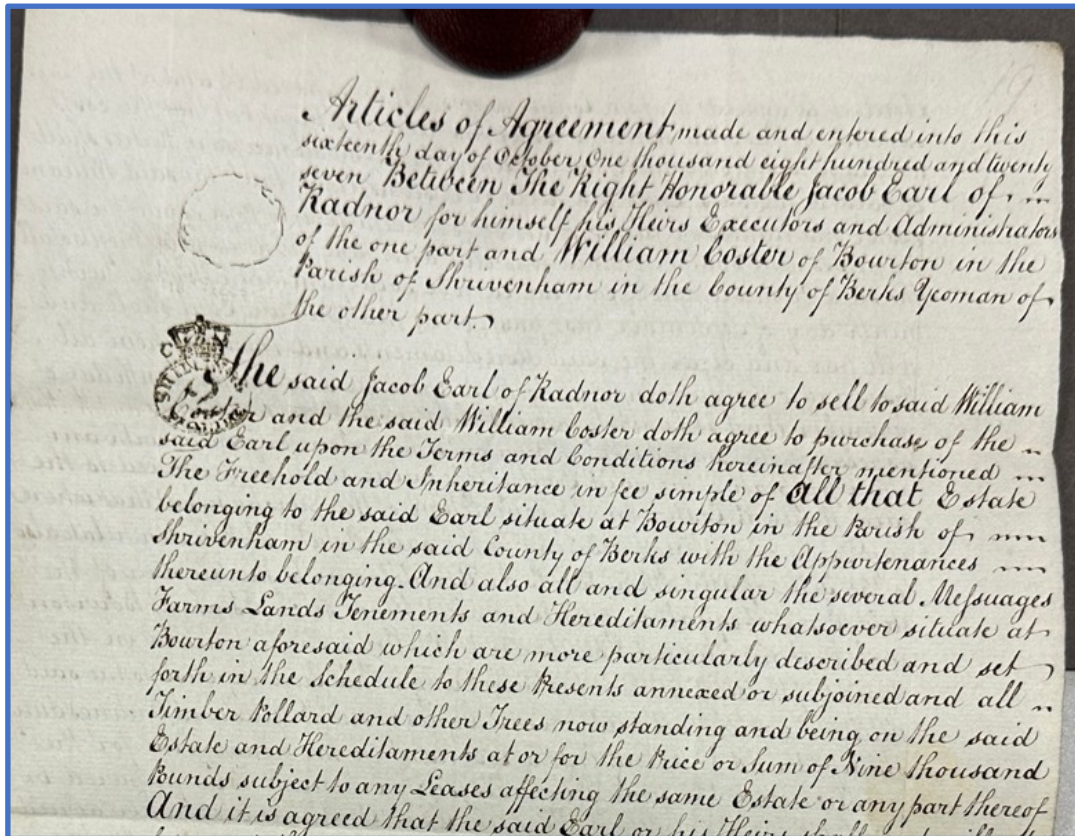 Articles of Agreement made and entered into this
sixteenth day of October One thousand eight hundred and twenty
seven Between The Right Honorable Jacob Earl of
Radnor for himself his Heirs Executors and Administrators
of the one part and William Coster of Bourton in the
Parish of Shrivenham in the County of Berks Yeoman of
the other part.
The said Jacob Earl of Radnor doth agree to sell to said William
Coster and the said William Coster doth agree to purchase of the
said Earl upon the Terms and Conditions hereinafter mentioned
The Freehold and Inheritance in fee simple of all that Estate
belonging to the said Earl situate at Bourton in the Parish of
Shrivenham in the said County of Berks with the Appurtenances
thereunto belonging. And also all and singular the several Meſsuages
Farms Lands Tenements and Hereditaments whatsoever situate at
Bourton aforesaid which are more particularly described and set
forth in the Schedule to these Presents annexed or subjoined and all
Timber Pollard and other Trees now standing and being on the said
Estate and Hereditaments at or for the Price or Sum of Nine thousand
Pounds subject to any Leases affecting the same Estate or any part thereof
And it is agreed that the said Earl or his Heirs shall